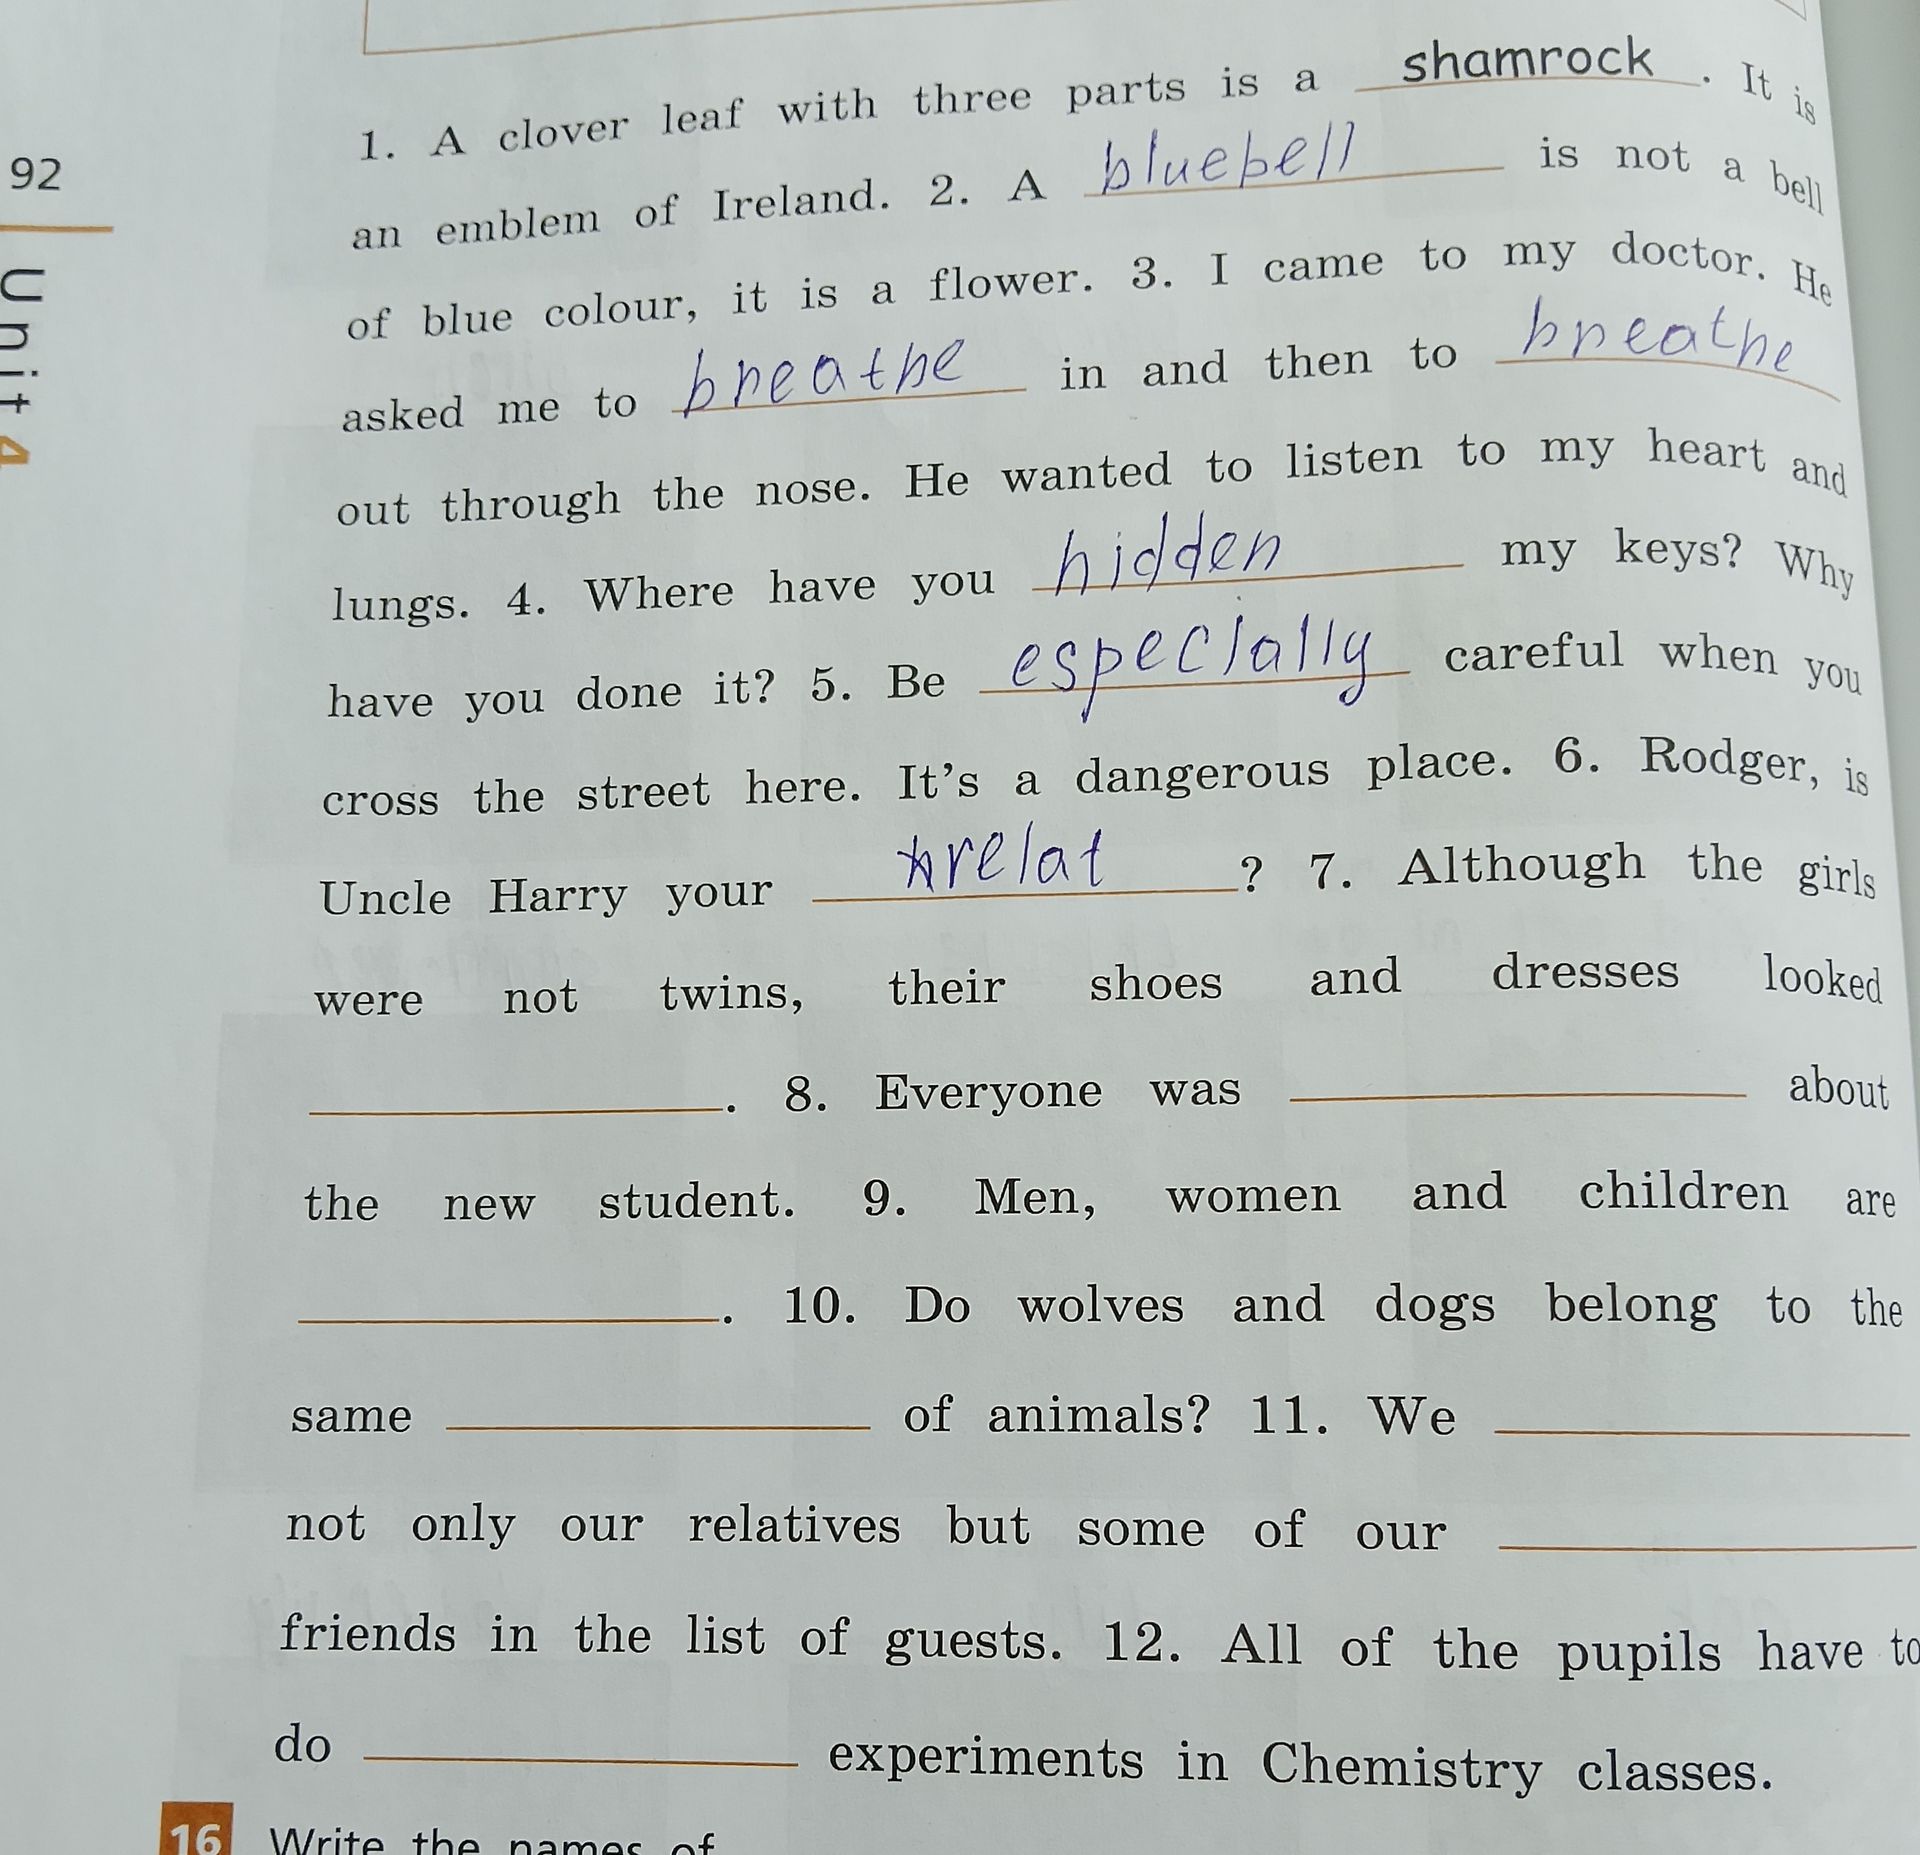 92
Unit 4
1. A clover leaf with three parts is a shamrock. It is
an emblem of Ireland. 2. A bluebell is not a bell
of blue colour, it is a flower. 3. I came to my doctor. He
asked me to breathe in and then to breathe
out through the nose. He wanted to listen to my heart and
lungs. 4. Where have you hidden my keys? Why
have you done it? 5. Be especially careful when you
cross the street here. It's a dangerous place. 6. Rodger, is
Uncle Harry your relat? 7. Although the girls
were not twins, their shoes and dresses looked
. 8. Everyone was about
the new student. 9. Men, women and children are
. 10. Do wolves and dogs belong to the
same of animals? 11. We
not only our relatives but some of our
friends in the list of guests. 12. All of the pupils have to
do experiments in Chemistry classes.
16 Write the names of